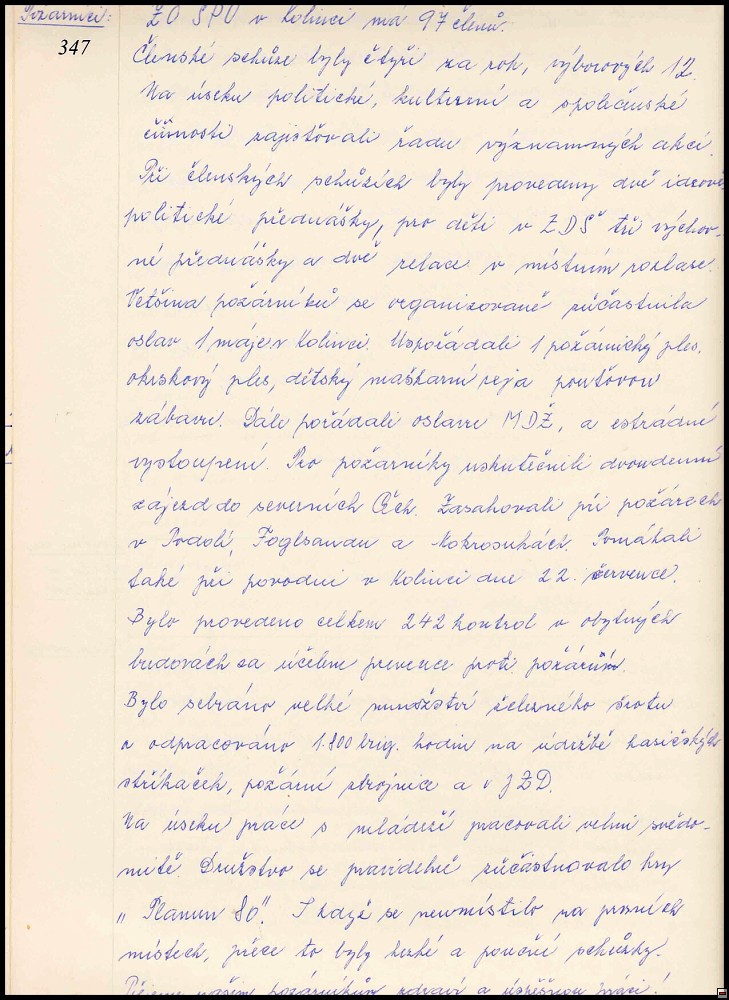 Požárníci: ZO SPO v Kolinci má 97 členů.
347
Členské schůze byly čtyři za rok, výborových 12.
Na úseku politické, kulturní a společenské
činnosti zajišťovali řadu významných akcí.
Při členských schůzích byly provedeny dvě ideově
politické přednášky, pro děti v ZDŠ tři výchov-
né přednášky a dvě relace v místním rozhlase.
Většina požárníků se organizovaně zúčastnila
oslav 1 máje v Kolinci. Uspořádali 1 požárnický ples,
okrskový ples, dětský maškarní reja pouťovou
zábavu. Dále pořádali oslavu MDŽ, a estrádní
vystoupení. Pro požárníky uskutečnili dvoudenní
zájezd do severních Čech. Zasahovali při požárech
v Podolí, Foglsandu a Mokrosukách. Pomáhali
také při povodni v Kolinci dne 22. července.
Bylo provedeno celkem 242 kontrol v obytných
budovách za účelem prevence proti požárům.
Bylo sebráno velké množství železného šrotu
a odpracováno 1.800 brig. hodin na údržbě hasičských
stříkaček, požární zbrojnice a v JZD.
Na úseku práce s mládeží pracovali velmi svědo-
mitě. Družstvo se pravidelně zúčastňovalo hry
„Plamen 80". I když se neumístilo na prvních
místech, přece to byly hezké a poučné schůzky.
Přejeme našim požárníkům zdraví a úspěšnou práci!